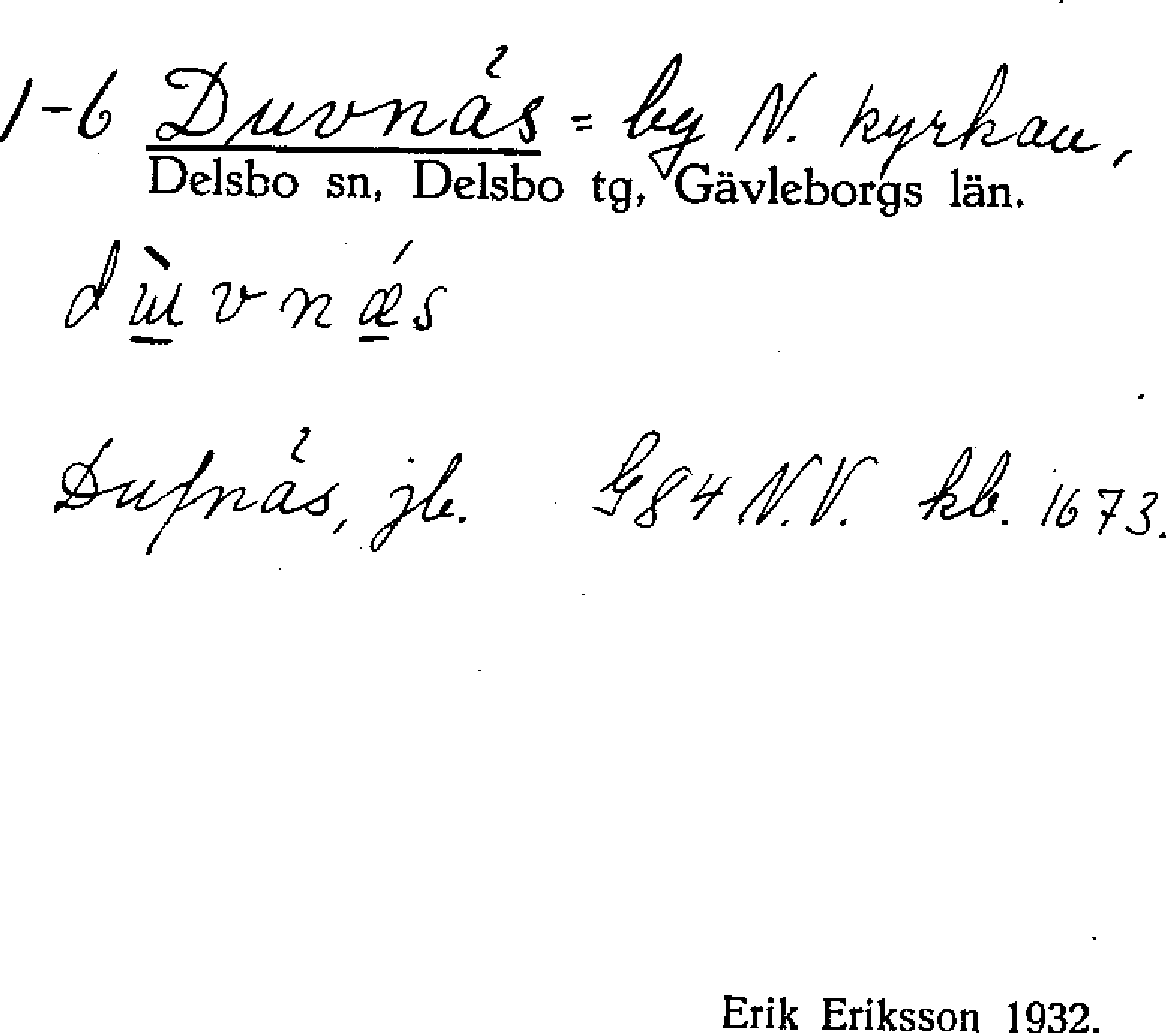 1-6 Duvnäs = by N. kyrkan,
Delsbo sn, Delsbo tg, Gävleborgs län.
dɯ̀vnǽs
Dufnäs, jb. G84 N.V. kb. 1673.
Erik Eriksson 1932.